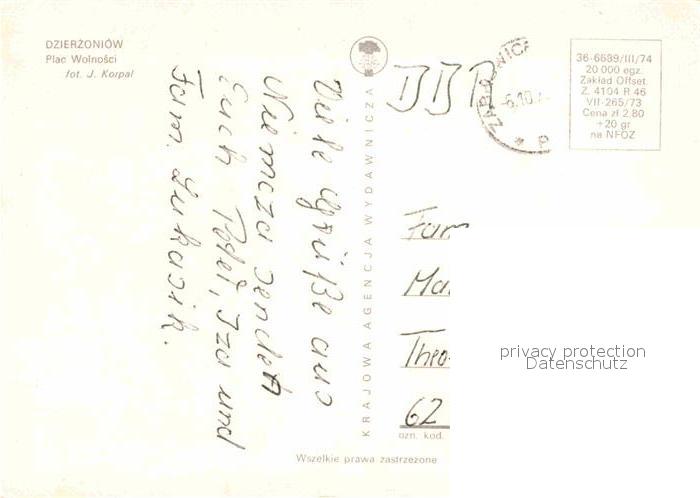 DZIERŻONIÓW
Plac Wolności
fot. J. Korpal
Viele Grüße aus
Niemcza sendet
Euch Peter, Iza und
Fam. Lukasik.
KRAJOWA AGENCJA WYDAWNICZA
6.10.
36-6689/III/74
20 000 egz.
Zakład Offset.
Z. 4104 R 46
VII-265/73
Cena zł 2,80
+20 gr
na NFOZ
Fam
Ma
Theo
62
ozn. kod.
privacy protection
Datenschutz
Wszelkie prawa zastrzeżone